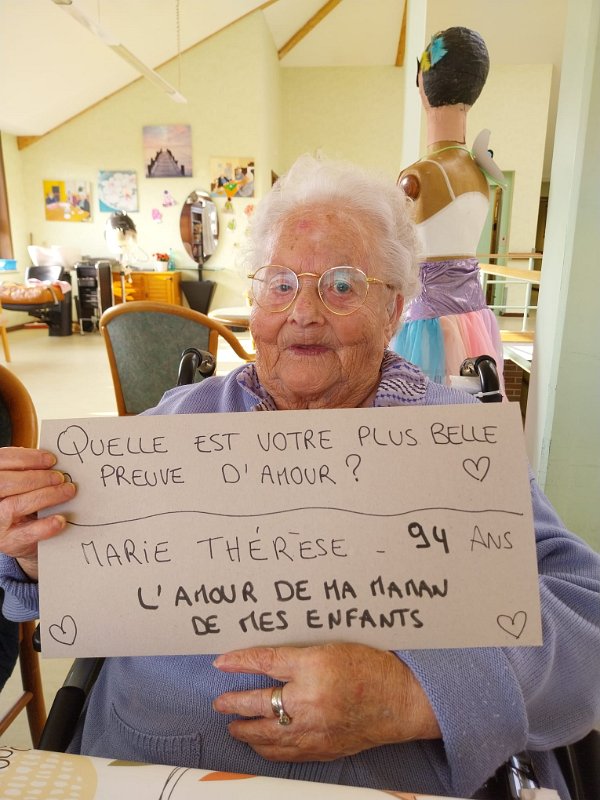 QUELLE EST VOTRE PLUS BELLE
PREUVE D'AMOUR ?
MARIE THÉRÈSE - 94 ANS
L'AMOUR DE MA MAMAN
DE MES ENFANTS